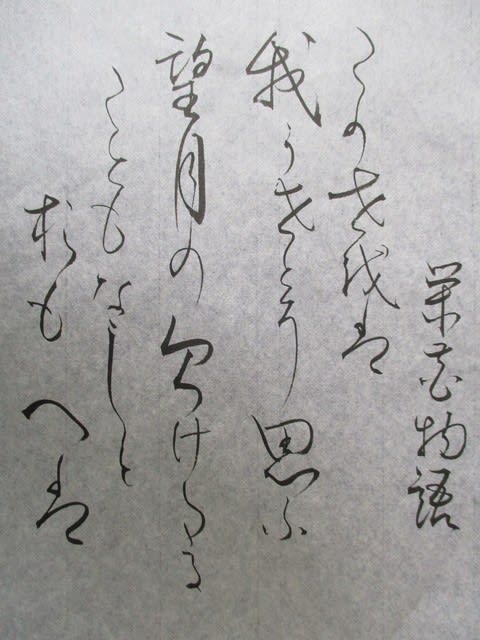 栄花物語
この世をは
我か世とそ思ふ
望月の欠けたる
こともなしと
おもへは